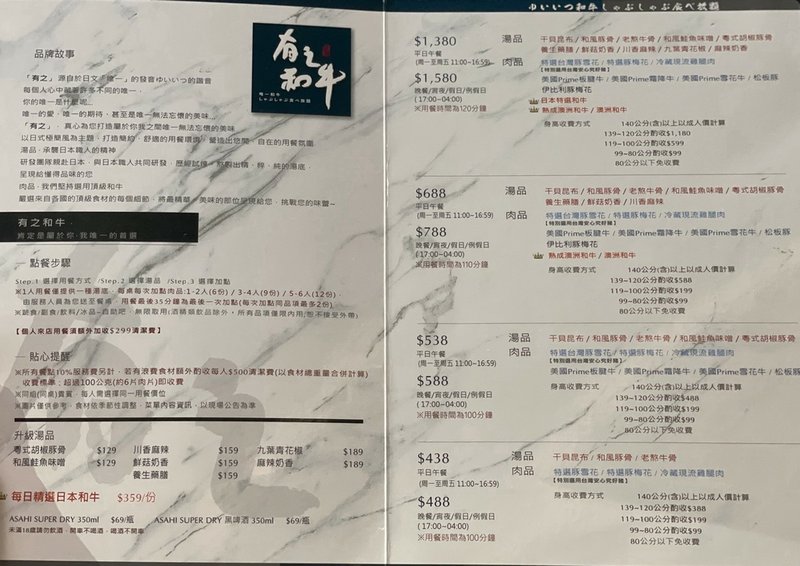 有之和牛
唯一和牛
しゃぶしゃぶ食べ放題
品牌故事
「有之」源自於日文「唯一」的發音ゆいいつ的諧音
每個人心中藏著許多不同的唯一，
你的唯一是什麼呢...
唯一的愛，唯一的期待，甚至是唯一無法忘懷的美味...
「有之」，真心為您打造屬於你我之間唯一無法忘懷的美味
以日式極簡風為主題，打造簡約，舒適的用餐環境，營造出悠閒，自在的用餐氛圍
湯品，承襲日本職人的精神
研發團隊親赴日本，與日本職人共同研發，歷經試煉，熬製出精，粹，純的湯底，
呈現給懂得品味的您
肉品，我們堅持選用頂級和牛
嚴選來自各國的頂級食材的每個細節，將最精華，美味的部位呈現給您，挑戰您的味蕾~
有之和牛
肯定是屬於你·我唯一的首選
一 點餐步驟
Step.1 選擇用餐方式 /Step.2 選擇湯品 /Step.3 選擇加點
※1人用餐僅提供一種湯底，每桌每次加點肉品:1-2人(6份) / 3-4人(9份) / 5-6人(12份)，
由服務人員為您送至餐桌，用餐最後35分鐘為最後一次加點(每次加點同品項最多2份)
【個人來店用餐須額外加收$299清潔費】
一 貼心提醒
※所有餐點10%服務費另計，若有浪費食材額外酌收每人$500清潔費(以食材總重量合併計算)
收費標準：超過100公克(約6片肉片)即收費
※同組(同桌)貴賓，每人需選擇同一用餐價位
※圖片僅供參考，食材依季節性調整，菜單內容資訊，以現場公告為準
升級湯品
粵式胡椒豚骨 $129 川香麻辣 $159 九葉青花椒 $189
和風鮭魚味噌 $129 鮮菇奶香 $159 麻辣奶香 $189
養生藥膳 $159
每日精選日本和牛 $359/份
ASAHI SUPER DRY 350ml $69/瓶 ASAHI SUPER DRY 黑啤酒 350ml $69/瓶
未滿18歲請勿飲酒，開車不喝酒，喝酒不開車
ゆいいつ和牛しゃぶしゃぶ食べ放題
$1,380
平日午餐
(周一至周五 11:00~16:59)
$1,580
晚餐/宵夜/假日/例假日
(17:00~04:00)
※用餐時間為120分鐘
湯品 干貝昆布 / 和風豚骨 / 老熬牛骨 / 和風鮭魚味噌 / 粵式胡椒豚骨
養生藥膳 / 鮮菇奶香 / 川香麻辣 / 九葉青花椒 / 麻辣奶香
肉品 特選台灣豚雪花 / 特選豚梅花 / 冷藏現流雞腿肉
【特別選用台灣安心究好豬】
美國Prime板腱牛 / 美國Prime霜降牛 / 美國Prime雪花牛 / 松板豚
伊比利豚梅花
日本特選和牛
熟成澳洲和牛 / 澳洲和牛
身高收費方式 140公分(含)以上以成人價計算
139~120公分酌收$1,180
119~100公分酌收$599
99~80公分酌收$99
80公分以下免收費
$688
平日午餐
(周一至周五 11:00~16:59)
$788
晚餐/宵夜/假日/例假日
(17:00~04:00)
※用餐時間為110分鐘
湯品 干貝昆布 / 和風豚骨 / 老熬牛骨 / 和風鮭魚味噌 / 粵式胡椒豚骨
養生藥膳 / 鮮菇奶香 / 川香麻辣
肉品 特選台灣豚雪花 / 特選豚梅花 / 冷藏現流雞腿肉
【特別選用台灣安心究好豬】
美國Prime板腱牛 / 美國Prime霜降牛 / 美國Prime雪花牛 / 松板豚
伊比利豚梅花
熟成澳洲和牛 / 澳洲和牛
身高收費方式 140公分(含)以上以成人價計算
139~120公分酌收$588
119~100公分酌收$199
99~80公分酌收$99
80公分以下免收費
$538
平日午餐
(周一至周五 11:00~16:59)
$588
晚餐/宵夜/假日/例假日
(17:00~04:00)
※用餐時間為100分鐘
湯品 干貝昆布 / 和風豚骨 / 老熬牛骨 / 和風鮭魚味噌 / 粵式胡椒豚骨
肉品 特選台灣豚雪花 / 特選豚梅花 / 冷藏現流雞腿肉
【特別選用台灣安心究好豬】
美國Prime板腱牛 / 美國Prime霜降牛 / 美國Prime雪花牛 / 松板豚
身高收費方式 140公分(含)以上以成人價計算
139~120公分酌收$488
119~100公分酌收$199
99~80公分酌收$99
80公分以下免收費
$438
平日午餐
(周一至周五 11:00~16:59)
$488
晚餐/宵夜/假日/例假日
(17:00~04:00)
※用餐時間為100分鐘
湯品 干貝昆布 / 和風豚骨 / 老熬牛骨
肉品 特選台灣豚雪花 / 特選豚梅花 / 冷藏現流雞腿肉
【特別選用台灣安心究好豬】
身高收費方式 140公分(含)以上以成人價計算
139~120公分酌收$388
119~100公分酌收$199
99~80公分酌收$99
80公分以下免收費